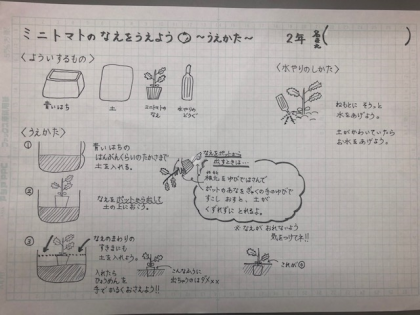 ミニトマトの なえをうえよう 〜うえかた〜 2年 名まえ( )
〈よういするもの〉
青いはち
土
ミニトマトの
なえ
水やりの
どうぐ
〈水やりのしかた〉
ねもとに そうっと
水をあげよう。
土がかわいていたら
お水をあげよう。
〈うえかた〉
① 青いはちの
はんぶんくらいのたかさまで
土を入れる。
② なえをポットから出して
土の上におこう。
③ なえのまわりの
すきまにも
土を入れよう。
入れたら
ひょうめんを
手でかるくおさえよう!!
なえをポットから
出すときは…
根元をゆびではさんで
ポットのあなをぎゃくの手のゆびで
すこし おすと、土が
くずれずに とれるよ。
※ なえが おれないよう
気をつけて!!
こんなふうに
出ちゃうのはダメ××
これが◎